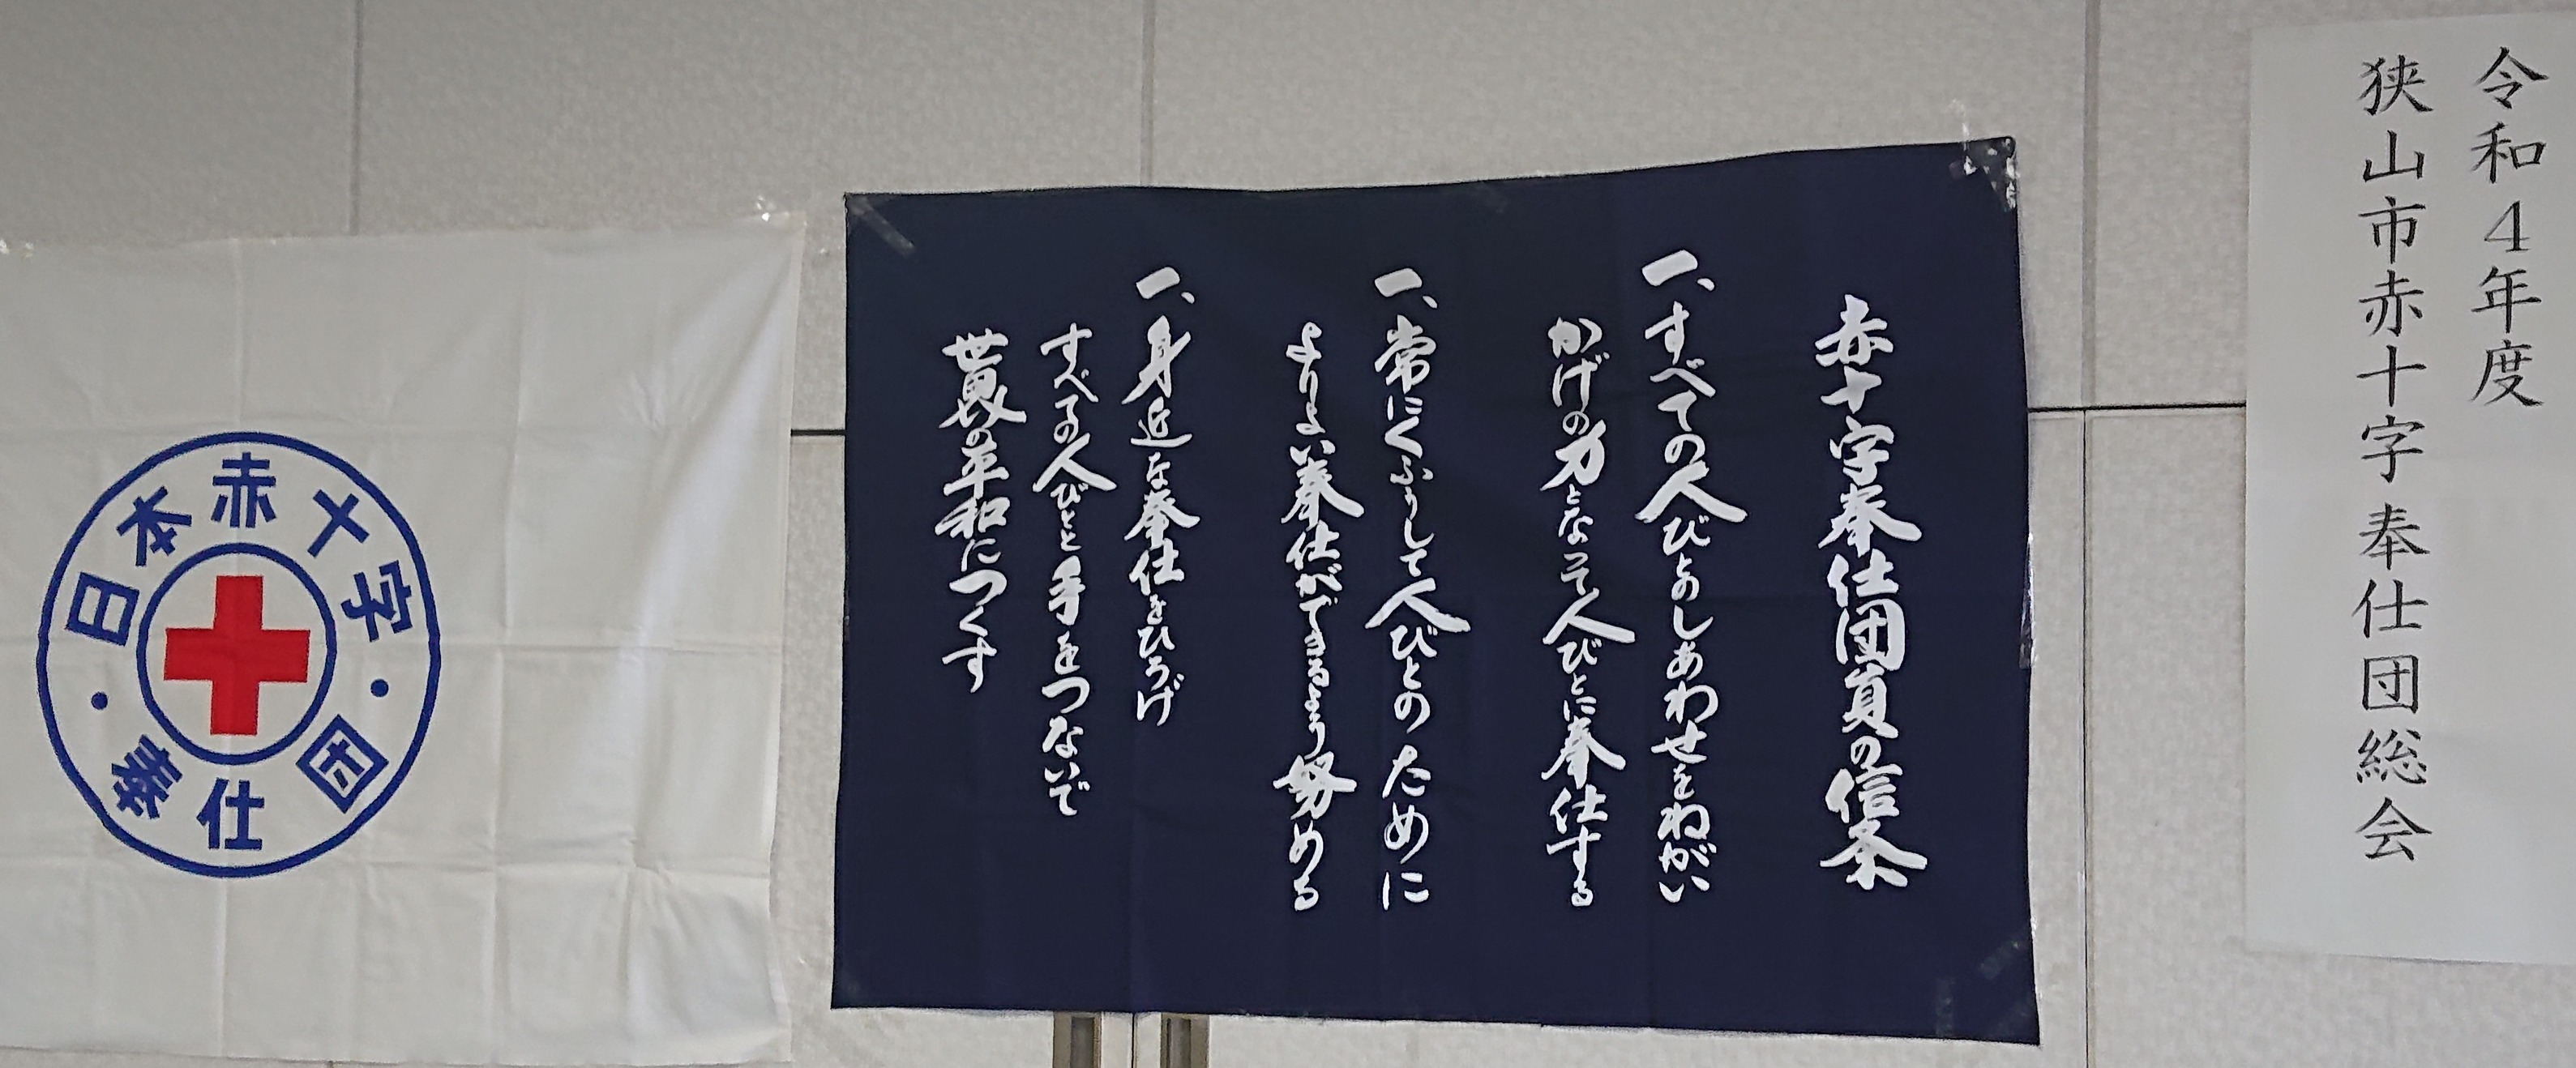 令和4年度
狭山市赤十字奉仕団総会
赤十字奉仕団員の信条
一、すべての人びとのしあわせをねがい
かげの力となって人びとに奉仕する
一、常にくふうして人びとのために
よりよい奉仕ができるよう努める
一、身近な奉仕をひろげ
すべての人びとと手をつないで
世界の平和につくす
日本赤十字・奉仕団・